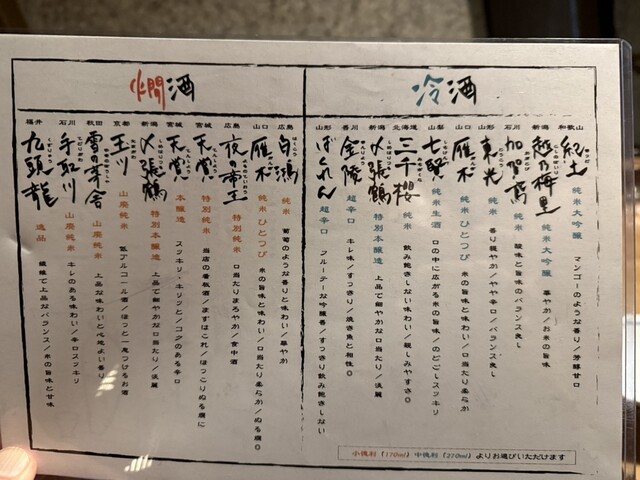 冷酒
和歌山
紀土
純米大吟醸
マンゴーのような香り/芳醇甘口
新潟
越乃梅里
純米大吟醸
華やか/お米の旨味
石川
加賀鳶
純米
酸味と旨味のバランス良し
山形
東光
純米
香り穏やか/やや辛口/バランス良し
山口
雁木
純米 ひとつび
米の旨味と味わい/口当たり柔らか
山梨
七賢
純米生酒
口の中に広がる米の旨味/のどごしスッキリ
北海道
三千櫻
純米
飲み飽きしない味わい/親しみやすさ◎
新潟
〆張鶴
特別本醸造
上品で軽やかな口当たり/淡麗
香川
金陵
超辛口
キレ味/すっきり/焼き魚と相性◎
山形
ばくれん
超辛口
フルーティーな吟醸香/すっきり飲み飽きしない
燗酒
広島
白鴻
純米
葡萄のような香りと味わい/華やか
山口
雁木
純米 ひとつび
米の旨味と味わい/口当たり柔らか/ぬる燗◎
広島
夜の帝王
特別純米
口当たりまろやか/食中酒
宮城
天賞
特別純米
当店の看板酒/まずはこれ/ほっこりぬる燗に
宮城
天賞
本醸造
スッキリ・キリッと/コクのある辛口
新潟
〆張鶴
特別本醸造
上品で軽やかな口当たり/淡麗
京都
玉川
山廃純米
低アルコール酒/ほっと一息つけるお酒
秋田
雪の茅舎
山廃純米
上品な味わいと心地よい香り
石川
手取川
山廃純米
キレのある味わい/辛口スッキリ
福井
九頭龍
逸品
繊細で上品なバランス/米の旨味と甘味
小徳利（170ml）中徳利（270ml）よりお選びいただけます